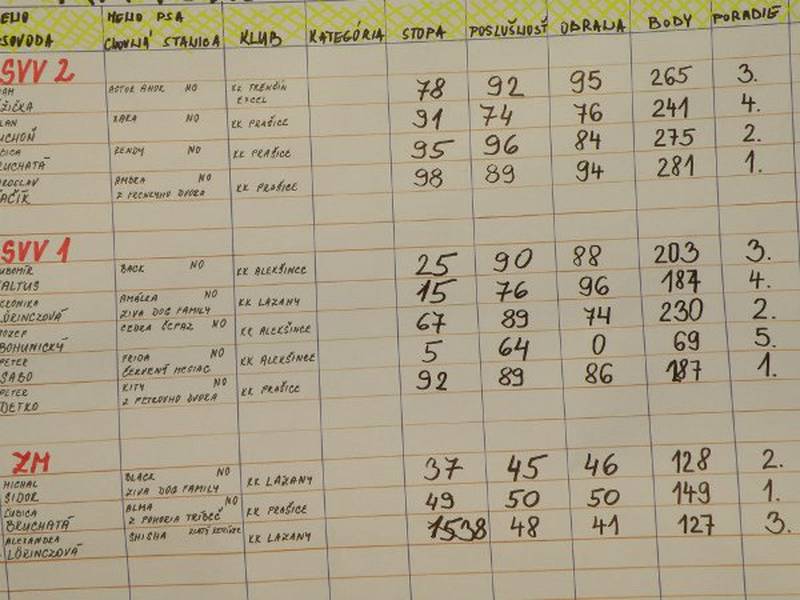 MENO PSA
SVODA CHOVNÁ STANICA KLUB KATEGÓRIA STOPA POSLUŠNOSŤ OBRANA BODY PORADIE
SVV 2
ASTOR AMOR NO KK TRENČÍN 78 92 95 265 3.
EXCEL
ZARA NO KK PRAŠICE 91 74 76 241 4.
RENDY NO KK PRAŠICE 95 96 84 275 2.
RUCHATÁ
AMBRA NO KK PRAŠICE 98 89 94 281 1.
SVV 1
BACK NO KK ALEKŠINCE 25 90 88 203 3.
ALTUS
AMÁLKA NO KK LAZANY 15 76 96 187 4.
LÖRINCZOVÁ ZIVA DOG FAMILY
CEDRA NO KK ALEKŠINCE 67 89 74 230 2.
BOHUNICKÝ
PETER FRIDA NO KK ALEKŠINCE 5 64 0 69 5.
SABO ČERVENÝ MESIAC
PETER KITY NO KK PRAŠICE 92 89 86 187 1.
DETKO Z PETROVHO DVORA
ZM
MICHAL BLACK NO KK LAZANY 37 45 46 128 2.
SIDOR ZIVA DOG FAMILY
ĽUBICA ALMA NO KK PRAŠICE 49 50 50 149 1.
BRUCHATÁ Z POHORIA TRÍBEČ
ALEXANDRA SHISHA ZLATÝ KK LAZANY 1538 48 41 127 3.
LÖRINCZOVÁ